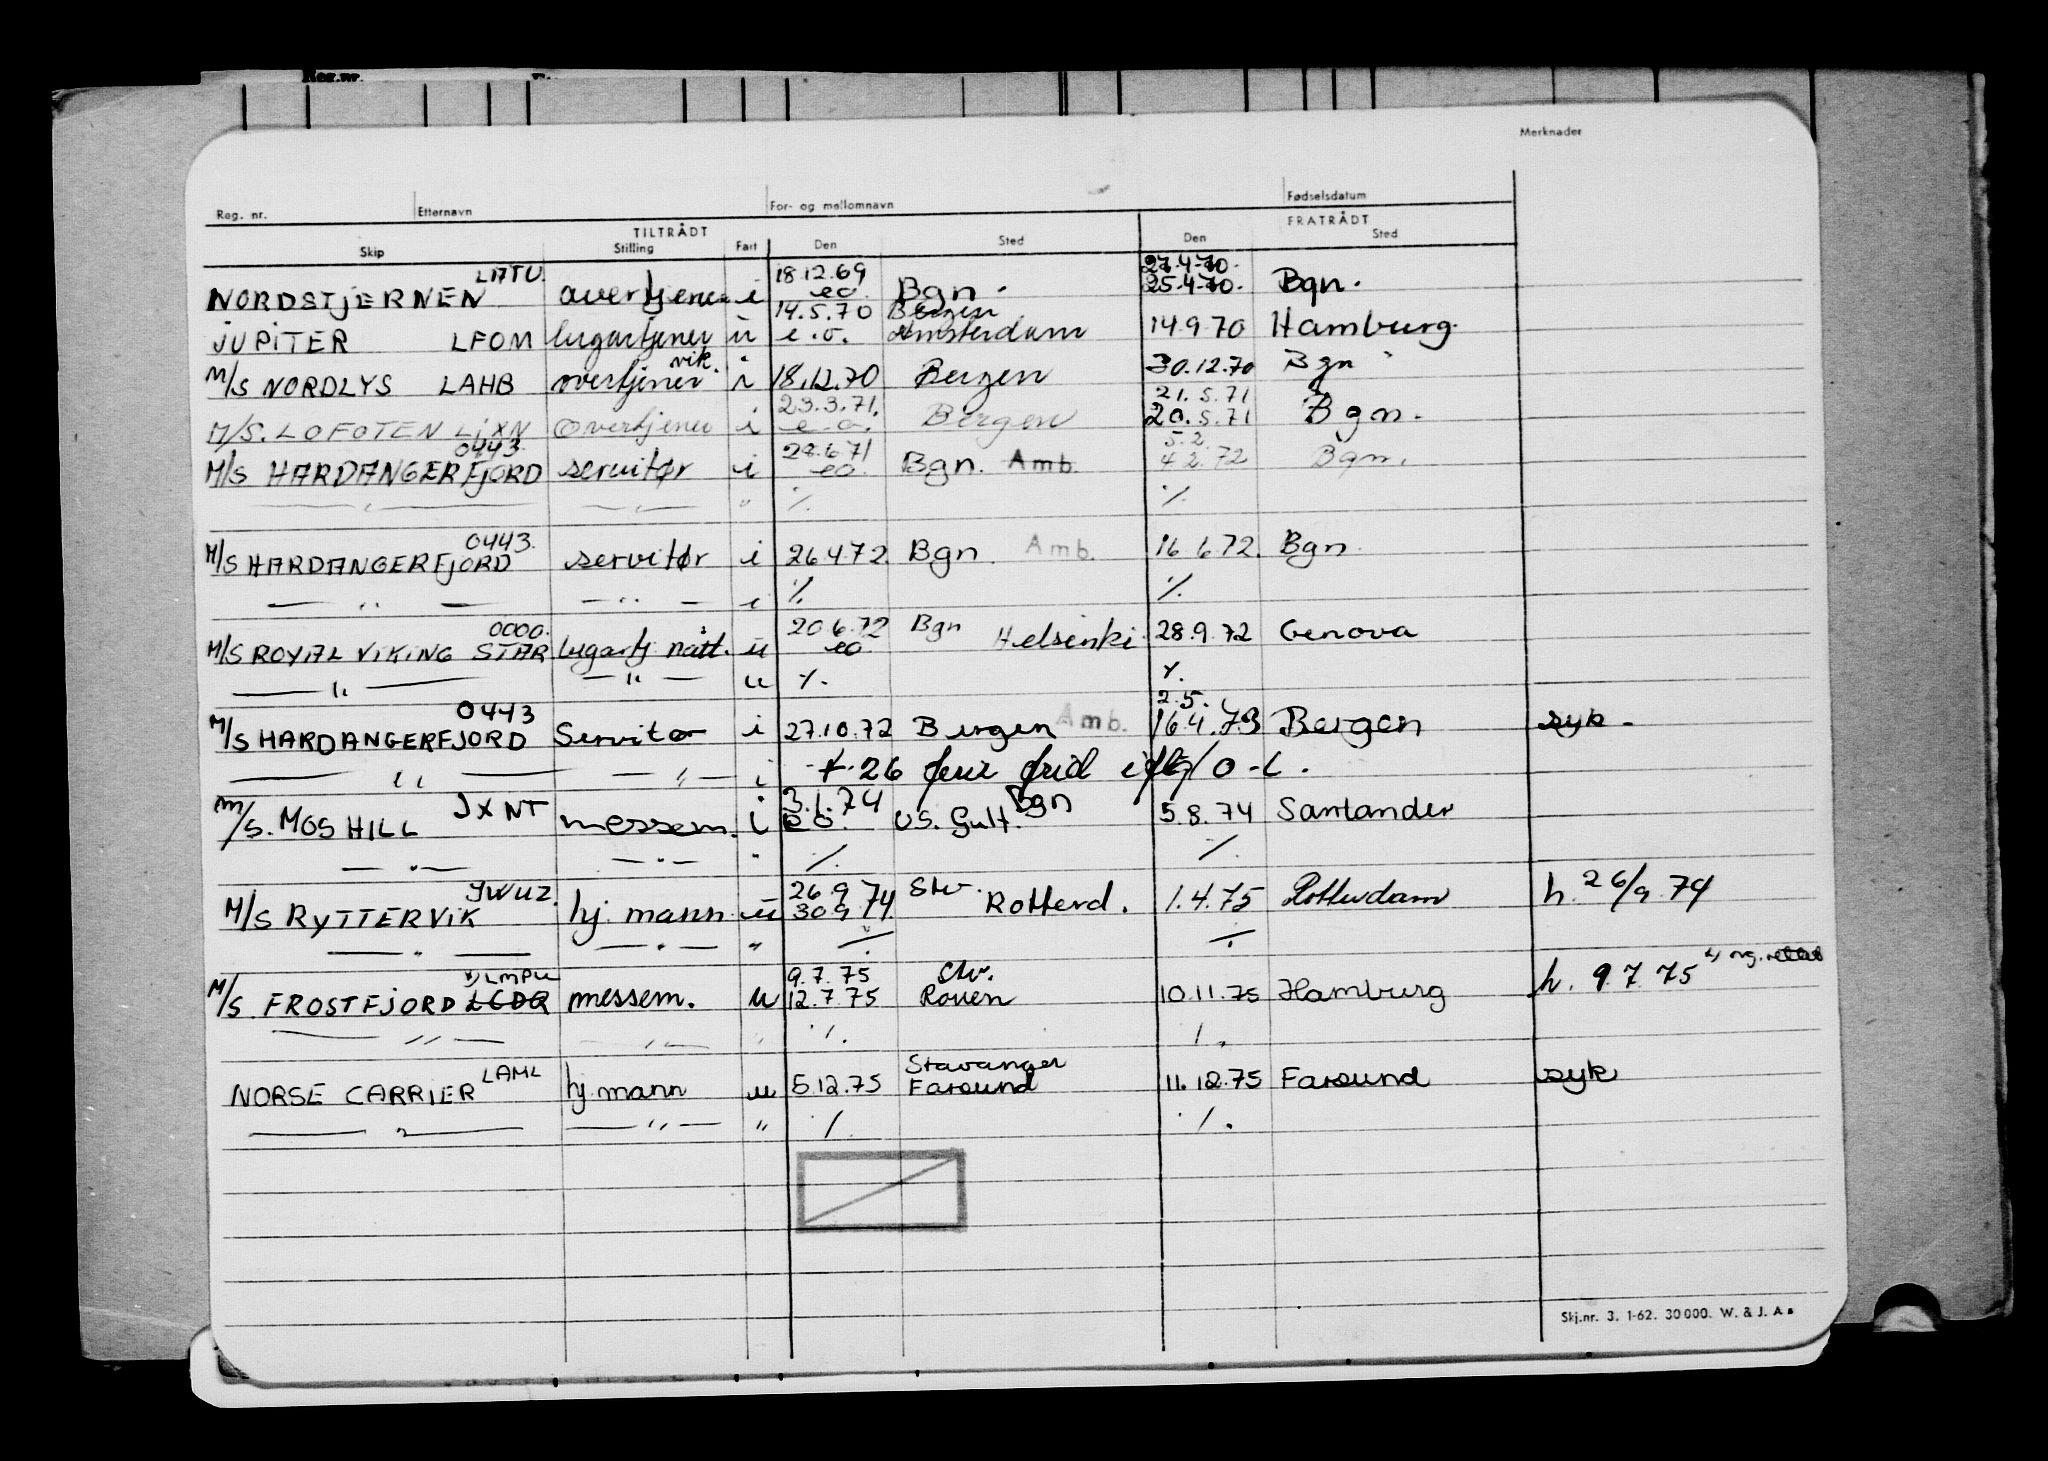 Reg.nr.
Merknader
Reg. nr. Etternavn For- og mellomnavn Fødselsdatum
TILTRÅDT FRATRÅDT
Skip Stilling Fart Den Sted Den Sted
LATU 18.12.69 27.4.70.
NORDSTJERNEN overtjener i eo. Bgn. 25.4.70. Bgn.
14.5.70 Bergen
JUPITER LFOM lugartjener u e.o. Amsterdam 14.9.70 Hamburg.
vik.
M/S NORDLYS LAHB overtjener i 18.12.70 Bergen 30.12.70 Bgn
23.3.71. 21.5.71
M/S. LOFOTEN LIXN overtjener i e.o. Bergen 20.5.71 Bgn.
0443. 28.6.71 5.2.
M/S HARDANGERFJORD servitør i eo. Bgn. Amb. 4.2.72 Bgn.
— " — — " — " ·/. ·/.
0443.
M/S HARDANGERFJORD servitør i 26.4.72. Bgn. Amb. 16.6.72. Bgn.
— " — — " — i ·/. ·/.
0000. 20.6.72 Bgn
M/S ROYAL VIKING STAR lugartj. natt. u eo. Helsinki 28.9.72 Genova
— " — — " — u ·/. ·/.
0443 2.5.
M/S HARDANGERFJORD Servitør i 27.10.72 Bergen Amb. 16.4.73 Bergen syk.
— " — — " — i + 26 frid iflg/ o-l.
JXNT 3.1.74 Bgn
M/S. MOSHILL messem. i eo. US. Gulf. 5.8.74 Santander
— " — — " — " ·/. ·/.
JWUZ. 26.9.74 Stv.
M/S RYTTERVIK hj. mann u 30.9.74. Rotterd. 1.4.75 Rotterdam h. 26/9.74
— " — — " — " ·/. ·/.
x) LMPU 9.7.75 Stv. x) ng.
M/S FROSTFJORD LGDQ messem. u 12.7.75 Rouen 10.11.75 Hamburg h. 9.7.75
— " — — " — " ·/. ·/.
LAML Stavanger
NORSE CARRIER hj. mann u 5.12.75 Farsund 11.12.75 Farsund syk
— " — — " — " ·/. ·/.
Skj.nr. 3. 1-62. 30 000. W. & J. A s